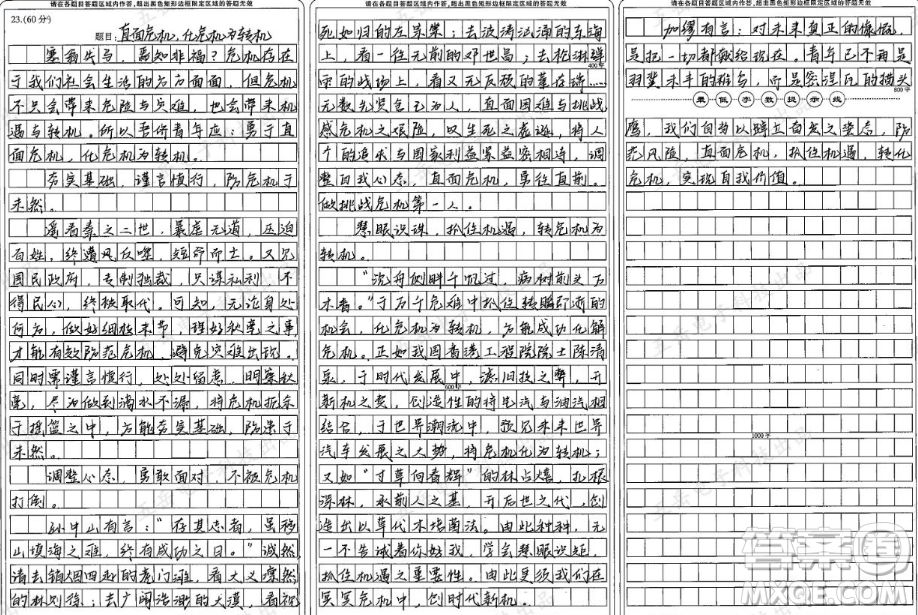 请在各题目答题区域内作答,超出黑色矩形边框限定区域的答题无效
23.(60分)
题目：直面危机,化危机为转机
塞翁失马,焉知非福?危机存在
于我们社会生活的方方面面,但危机
不只会带来危险与灾难,也会带来机
遇与转机。所以吾侪青年应:勇于直
面危机,化危机为转机。
夯实基础,谨言慎行,防危机于
未然。
遥看秦之二世,暴虐无道,压迫
百姓,终遭风反噬,短命而亡。又见
国民政府,专制独裁,只谋私利,不
得民心,终被取代。可知,无论身处
何方,做好细枝末节,理好秋毫之事,
才能有效防范危机、避免灾难出现。
同时需谨言慎行,处处留意,明察秋
毫,尽力做到滴水不漏,将危机扼杀
于摇篮之中,方能夯实基础,防患于
未然。
调整心态,勇敢面对,不被危机
打倒。
孙中山有言:“吾志所向,虽移
山填海之难,终有成功之日。”诚然
请去销烟四起的虎门滩,看大义凛然
的林则徐;去广阔浩渺的大漠,看视
请在各题目答题区域内作答,超出黑色矩形边框限定区域的答题无效
死如归的左宗棠;去波涛汹涌的东海
上,看一往无前的邓世昌;去枪林弹
400字
雨的战场上,看义无反顾的董存瑞……
无数先贤已为人,直面困难与挑战
感危机之艰险,以生死之虑,将人
个的追求与国家利益紧密相连,调
整自我心态,直面危机,勇往直前。
做挑战危机第一人。
慧眼识珠,抓住机遇,转危机为
转机。
“沉舟侧畔千帆过,病树前头万
木春。”于万千危难中抓住转瞬即逝的
机会,化危机为转机,方能成功化解
危机。正如我国香港工程院院士陈清
泉,于时代发展中,涤旧技之弊,开
600字
新机之蓑,创造性的将电汽与油汽相
结合,于世界潮流中,敏见未来世界
汽车发展之大势,将危机化为转机;
又如“寸草向春晖”的林占熺,扎根
深林,承前人之基,开后世之代,创
造出以草代木培菌法。由此种种,无
一不告诫着你好我,学会慧眼识炬,
抓住机遇之重要性。由此更须我们在
冥冥危机中,创时代新机。
请在各题目答题区域内作答,超出黑色矩形边框限定区域的答题无效
加缪有言:对未来真正的慷慨,
是把一切都献给现在。青年已不再是
羽翼未丰的雏鸟,
800字
最低字数提示线
鹰,我们自当以独立自发之姿态,防
范风险,直面危机,抓住机遇,转化
危机,实现自我价值。
1000字
答案圈
MXQE.COM